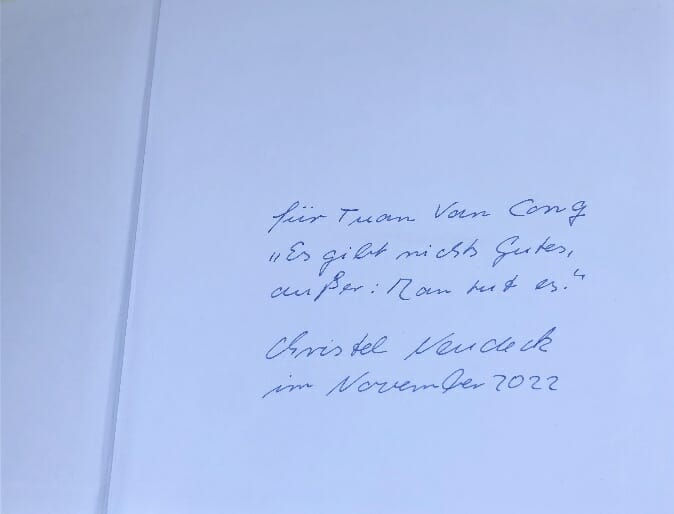 für Tuan Van Cong
„Es gibt nichts Gutes,
außer: Man tut es.“
Christel Neudeck
im November 2022